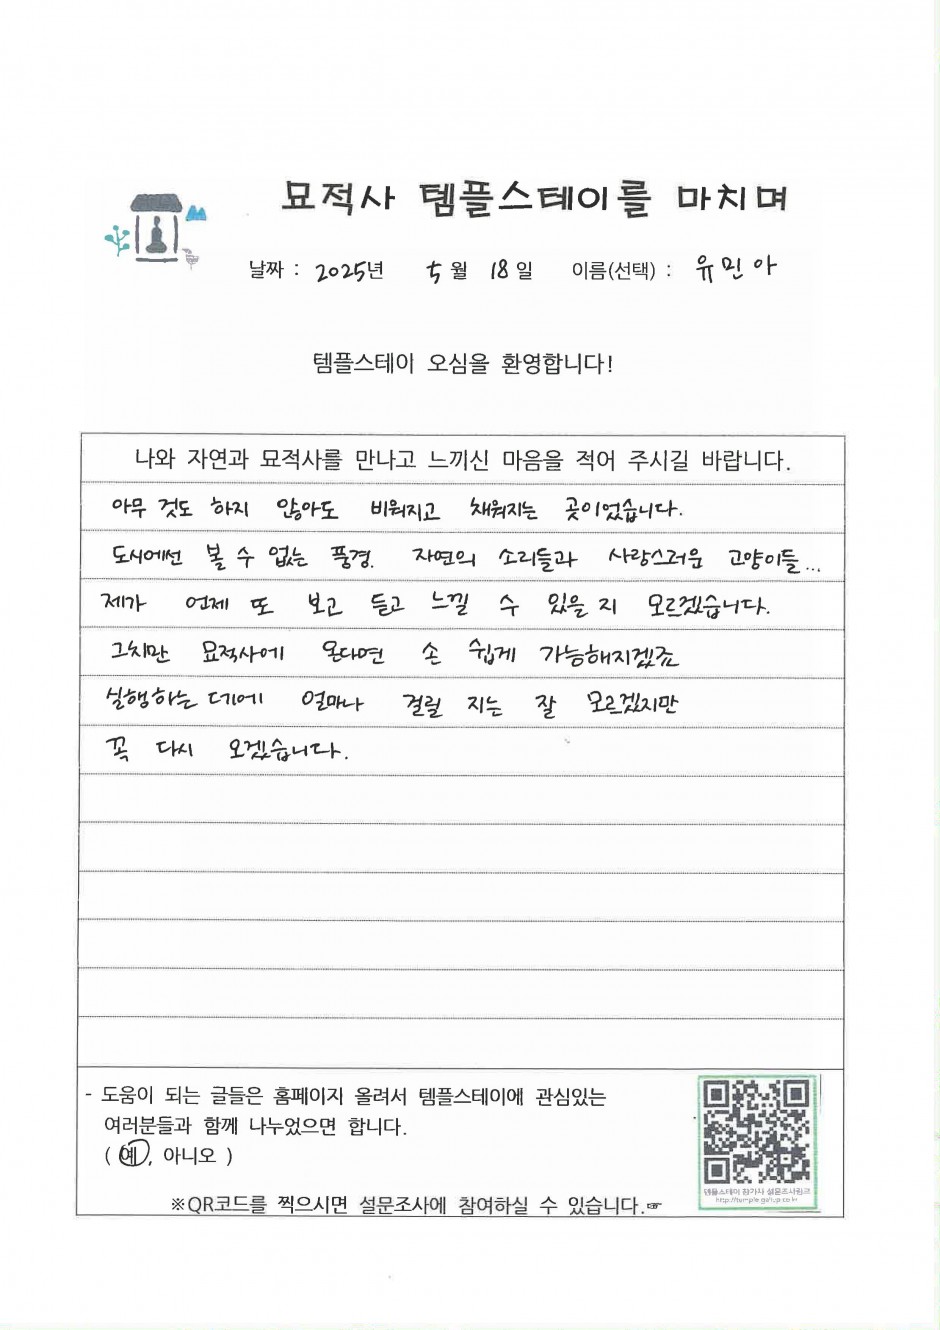 묘적사 템플스테이를 마치며
날짜 : 2025년 5월 18일 이름(선택) : 유민아
템플스테이 오심을 환영합니다!
나와 자연과 묘적사를 만나고 느끼신 마음을 적어 주시길 바랍니다.
아무 것도 하지 않아도 비워지고 채워지는 곳이었습니다.
도시에선 볼 수 없는 풍경. 자연의 소리들과 사랑스러운 고양이들...
제가 언제 또 보고 듣고 느낄 수 있을 지 모르겠습니다.
그치만 묘적사에 온다면 손 쉽게 가능해지겠죠
실행하는 데에 얼마나 걸릴 지는 잘 모르겠지만
꼭 다시 오겠습니다.
- 도움이 되는 글들은 홈페이지 올려서 템플스테이에 관심있는
여러분들과 함께 나누었으면 합니다.
( 예, 아니오 )
※QR코드를 찍으시면 설문조사에 참여하실 수 있습니다.☞
템플스테이 참가자 설문조사링크